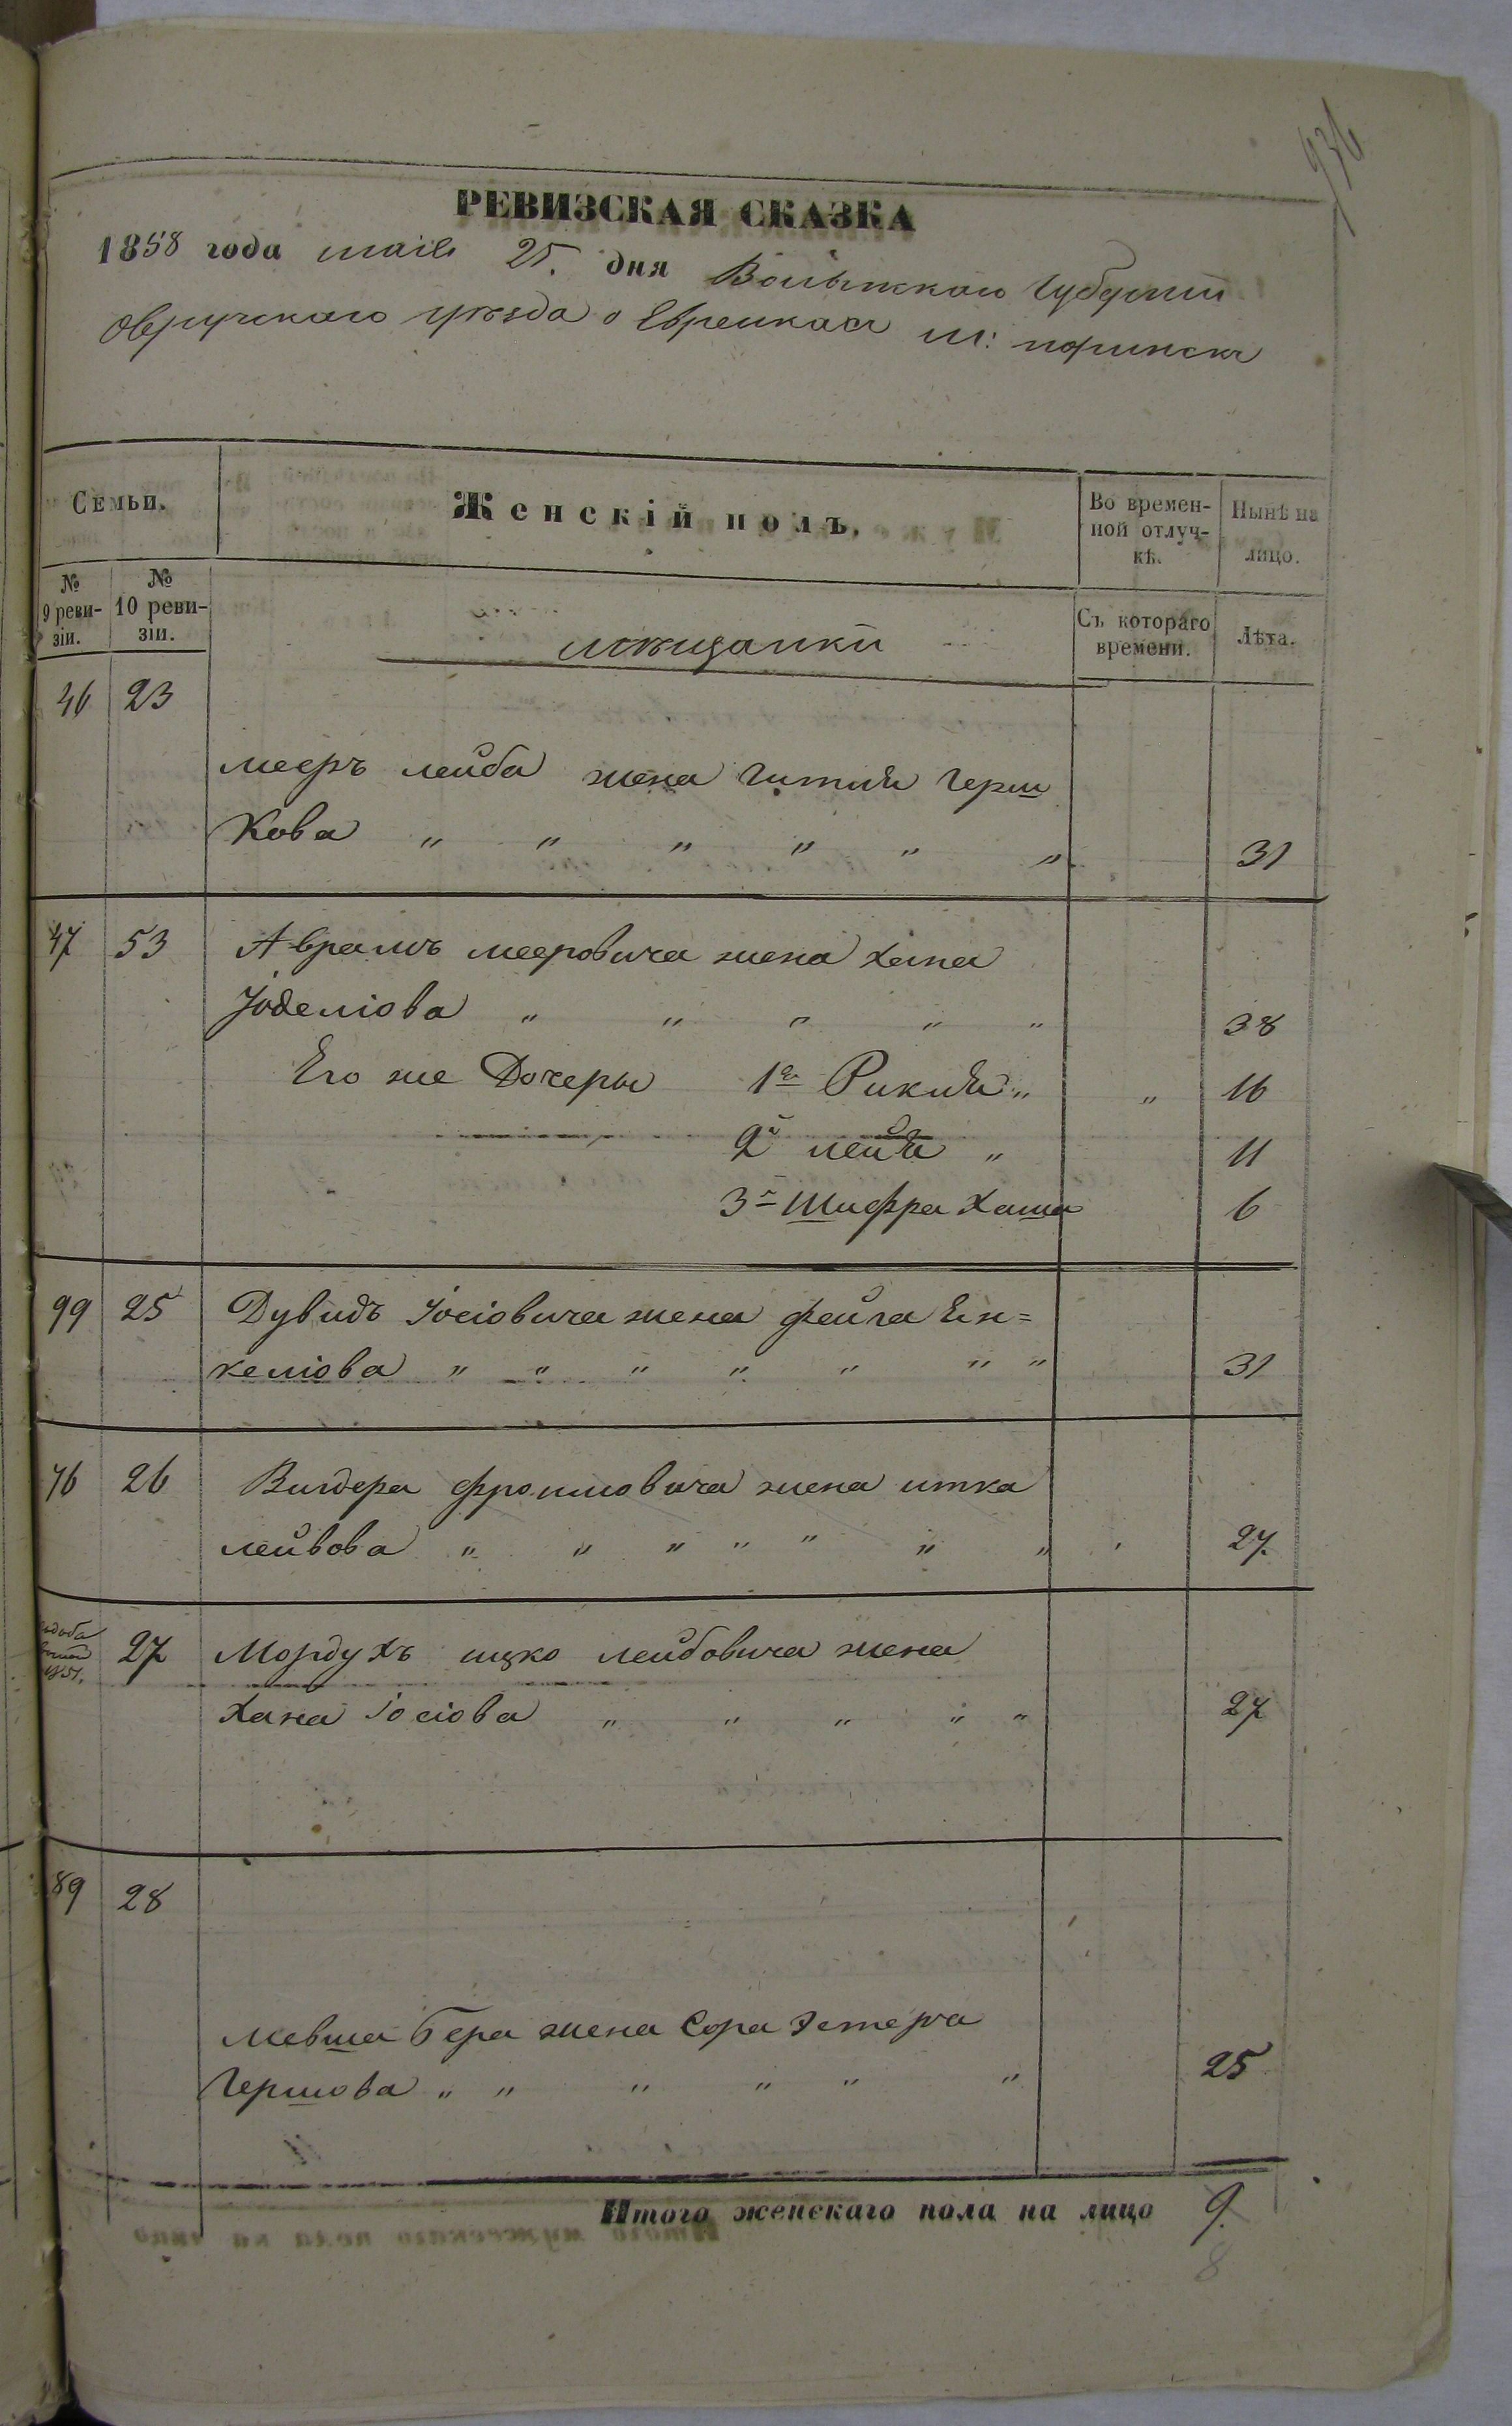 936
РЕВИЗСКАЯ СКАЗКА
1858 года маiя 25. дня Волынской Губернiи
Овручского уезда о Евреикахъ м: норинска
Семьи.
Женскiй полъ.
Во времен-
ной отлуч-
кѣ.
Нынѣ на
лицо.
№
9 реви-
зiи.
№
10 реви-
зiи.
мѣщанки
Съ котораго
времени.
Лѣта.
46 23
мееръ лейба жена Гитля Герш
кова " " " " " " 31
47 53 Аврамъ мееровича жена хана
Iоделiова " " " " " 38
Его же Дочеры 1я Рикля " " 16
2я лея " 11
3я Шифра Хаша 6
99 25 Дувидъ Iосiовича жена фейга Ен=
келiова " " " " " " " 31
76 26 Вигдера фроимовича жена итка
лейвова " " " " " " " 27.
1851. 27 Мордухъ ицко лейбовича жена
Хана Iосiова " " " " " 27
89 28
мевша бера жена Сора Эстерга
Гершова " " " " " " 25
Итого женскаго пола на лицо 9.
8